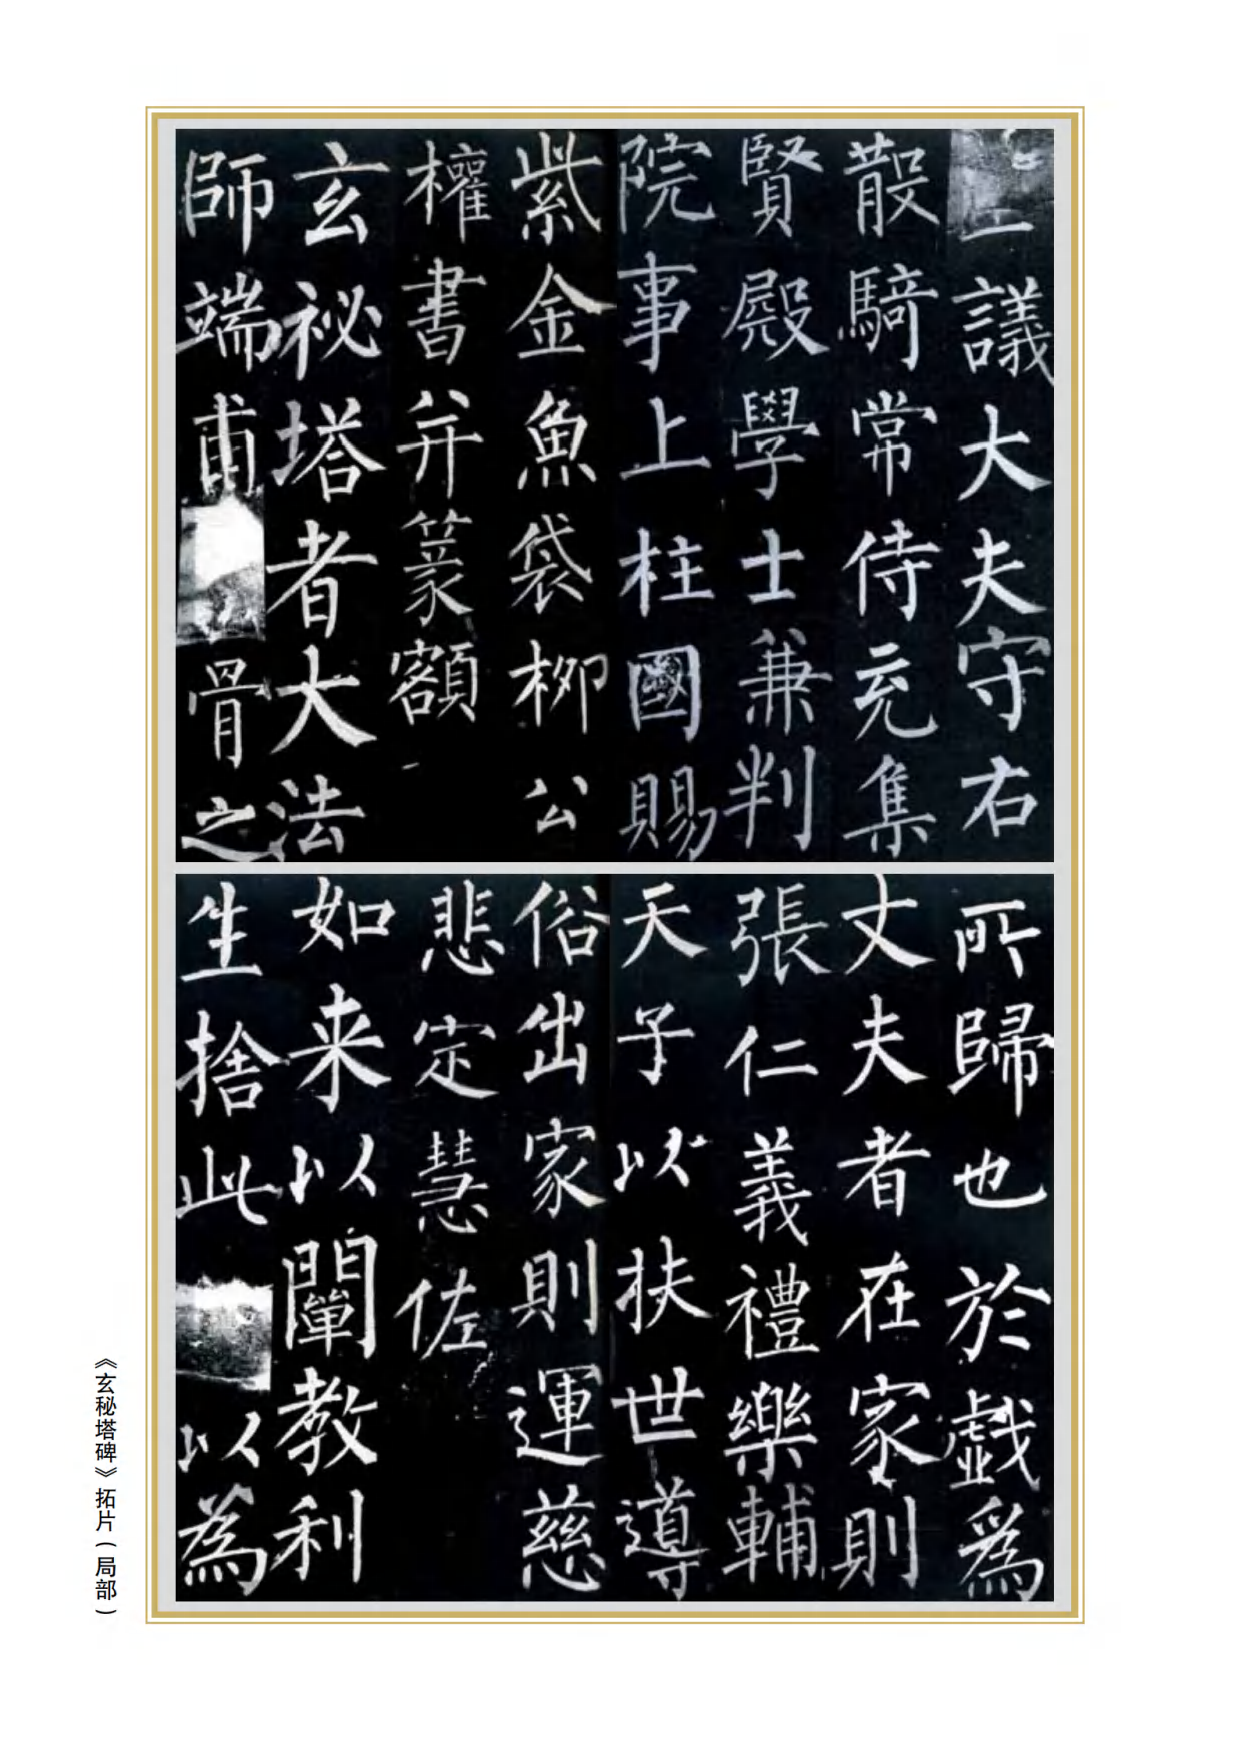 議大夫守右
散騎常侍充集
賢殿學士兼判
院事上柱國賜
紫金魚袋柳公
權書并篆額
玄祕塔者大法
師端甫骨之
所歸也於戲為
丈夫者在家則
張仁義禮樂輔
天子以扶世導
俗出家則運慈
悲定慧佐
如来以闡教利
生捨此以為
《玄秘塔碑》拓片(局部)